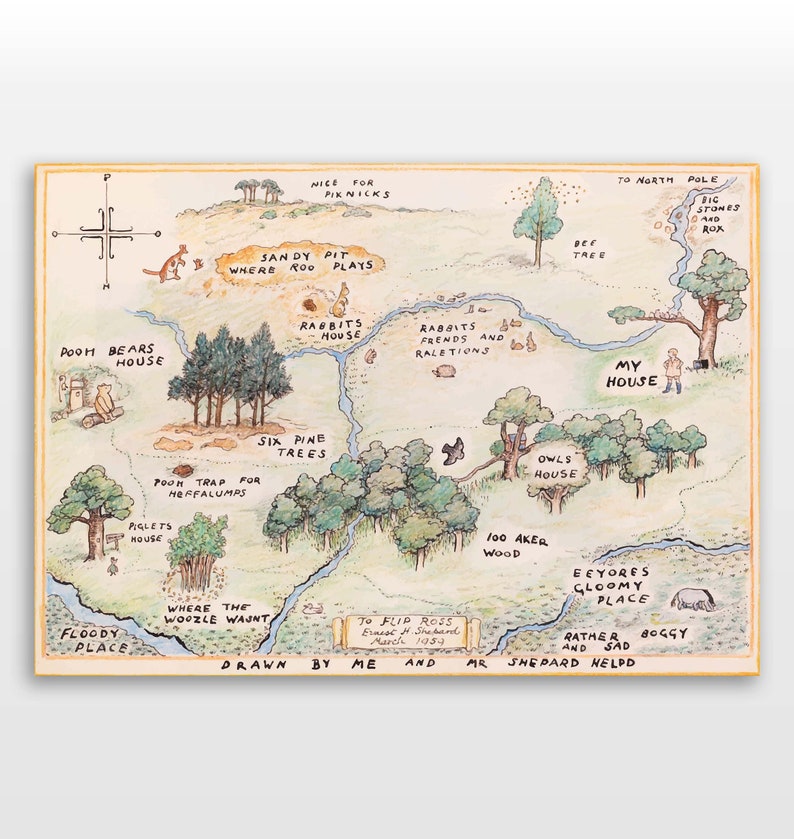 P
H
NICE FOR
PIKNICKS
TO NORTH POLE
BIG
STONES
AND
ROX
SANDY PIT
WHERE ROO PLAYS
BEE
TREE
RABBITS
HOUSE
RABBITS
FRENDS AND
RALETIONS
POOH BEARS
HOUSE
MY
HOUSE
SIX PINE
TREES
POOH TRAP FOR
HEFFALUMPS
OWLS
HOUSE
PIGLETS
HOUSE
100 AKER
WOOD
WHERE THE
WOOZLE WASNT
EEYORES
GLOOMY
PLACE
FLOODY
PLACE
TO FLIP ROSS
Ernest H. Shepard
March 1959
RATHER BOGGY
AND SAD
DRAWN BY ME AND MR SHEPARD HELPD